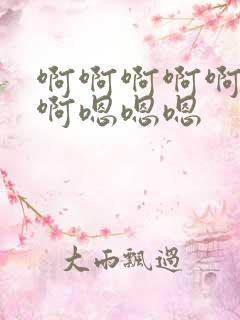 啊啊啊啊啊
啊嗯嗯嗯
大雨飄過